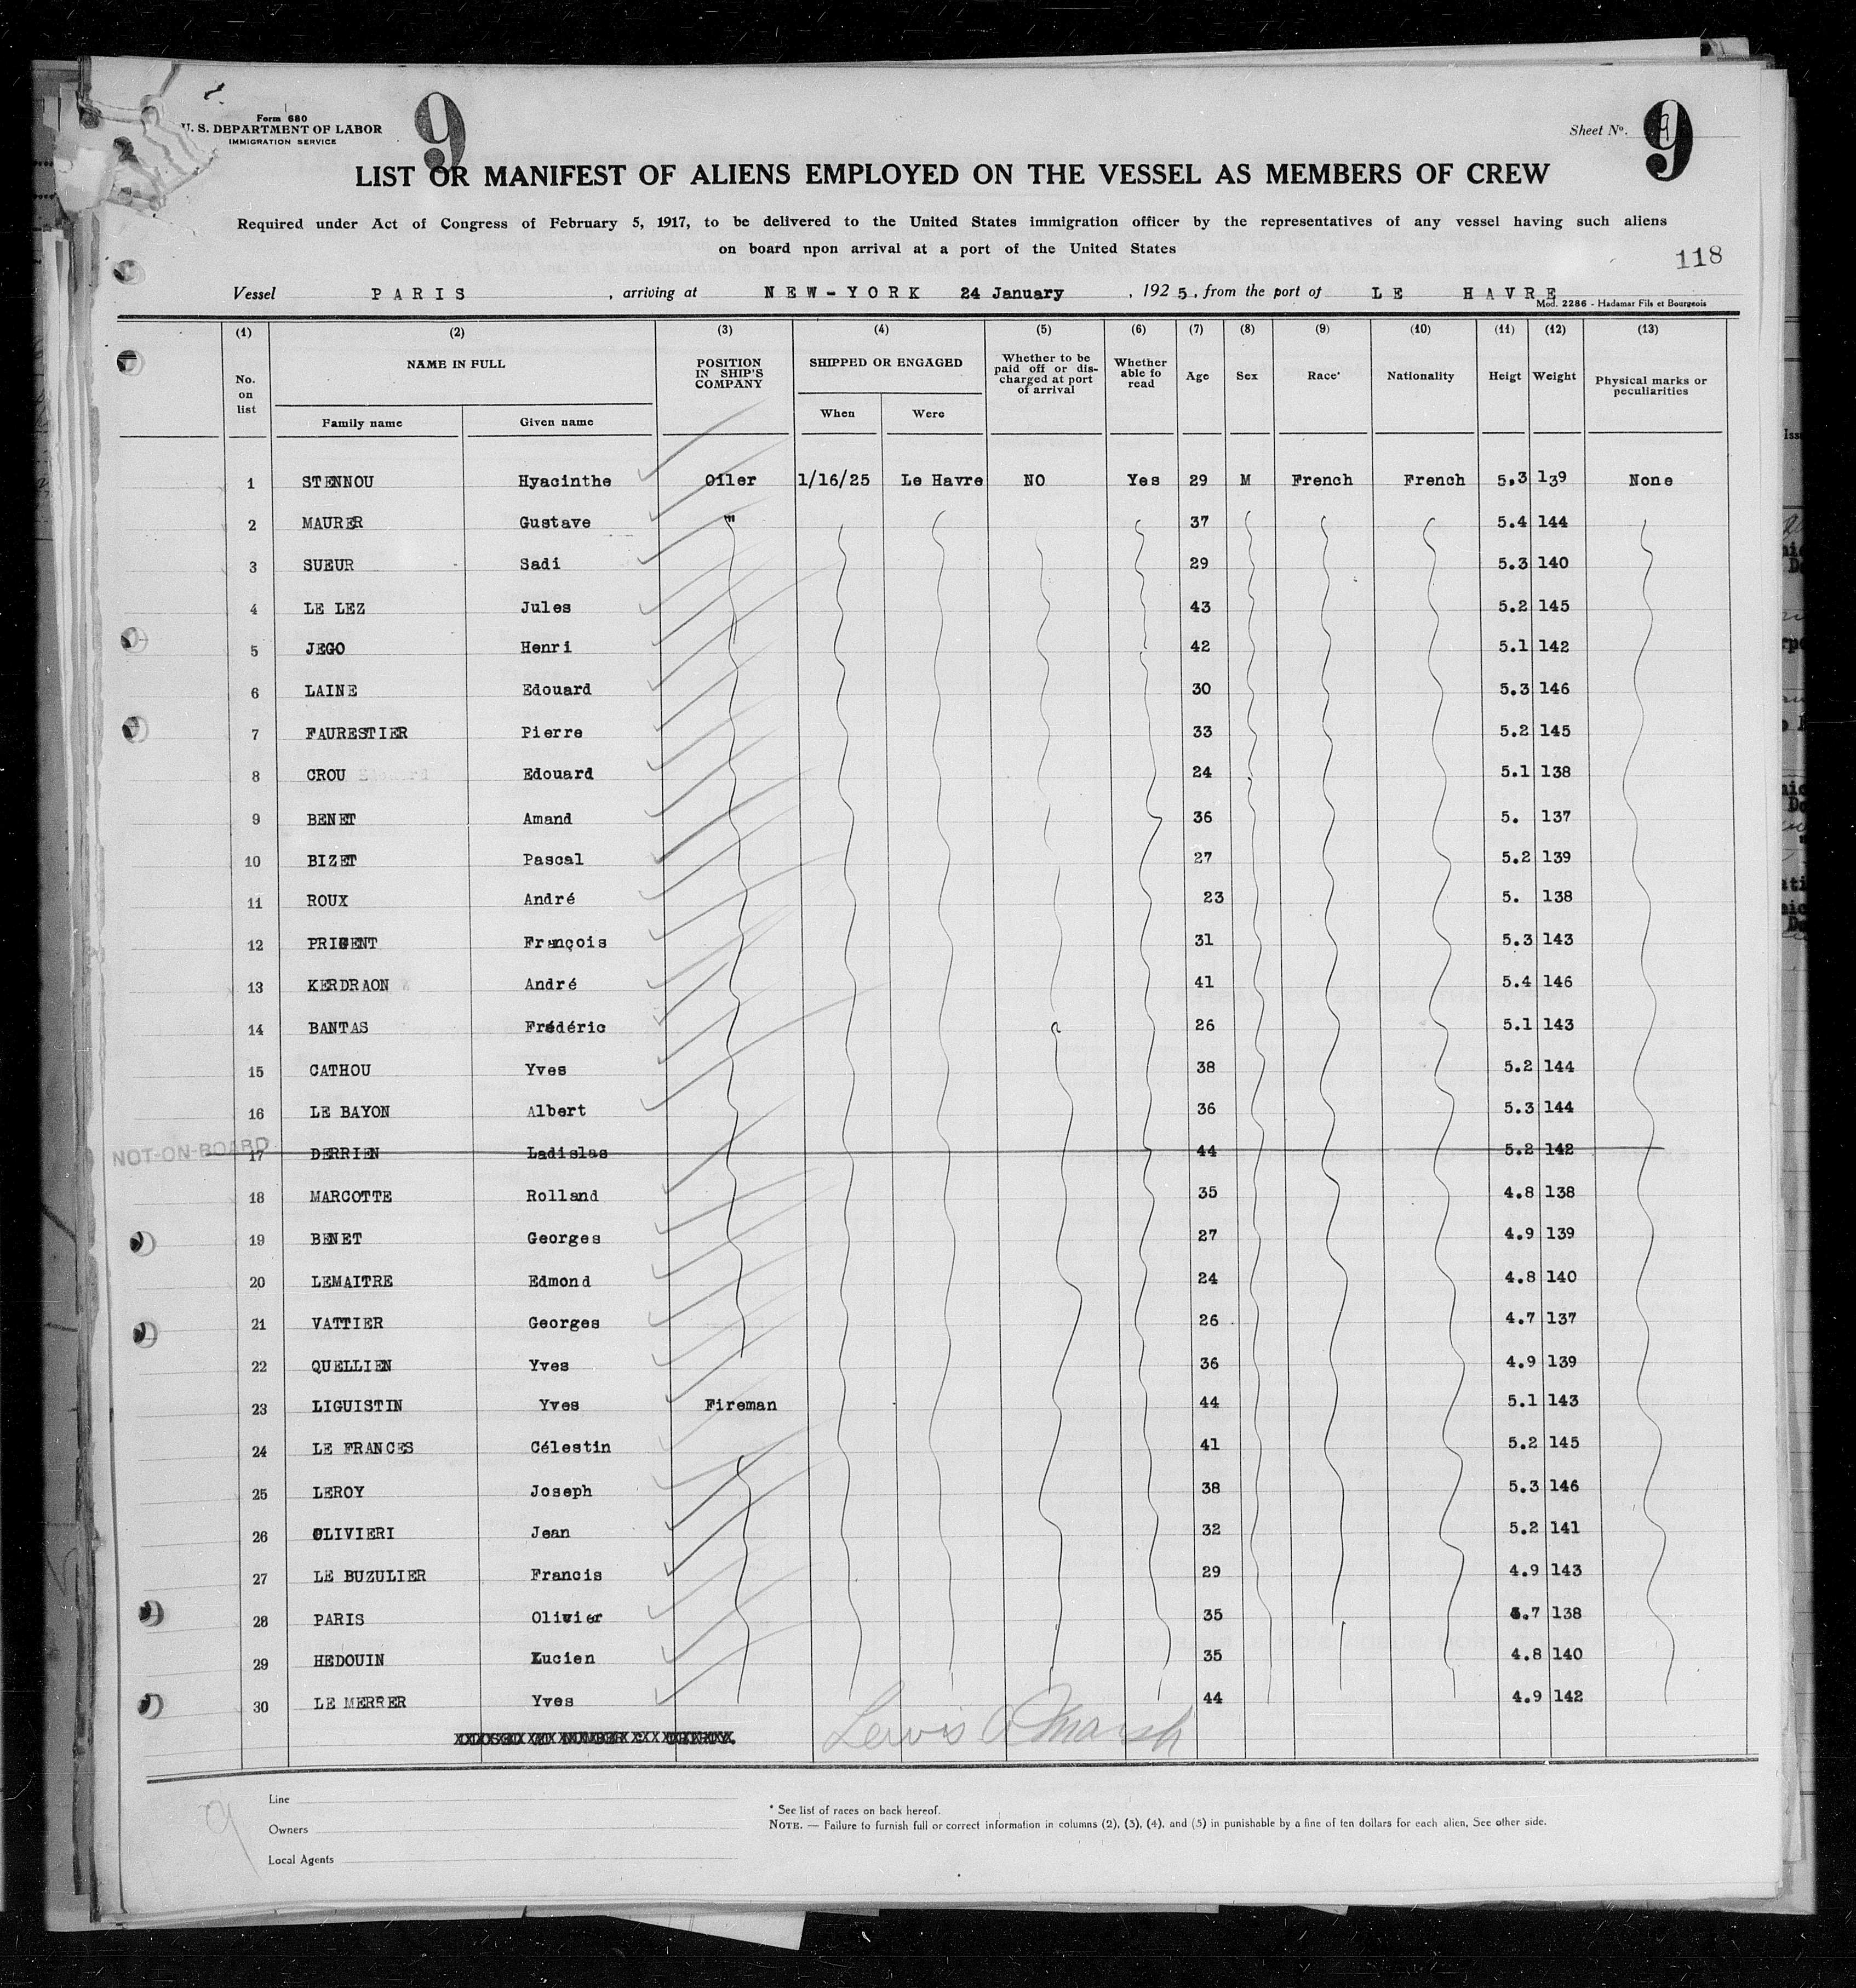 Form 680
U. S. DEPARTMENT OF LABOR
IMMIGRATION SERVICE
9
Sheet No. 9
9
LIST OR MANIFEST OF ALIENS EMPLOYED ON THE VESSEL AS MEMBERS OF CREW
Required under Act of Congress of February 5, 1917, to be delivered to the United States immigration officer by the representatives of any vessel having such aliens
on board npon arrival at a port of the United States
118
Vessel PARIS , arriving at NEW-YORK 24 January , 1925, from the port of LE HAVRE
Mod. 2286 - Hadamar Fils et Bourgeois
(1) (2) (3) (4) (5) (6) (7) (8) (9) (10) (11) (12) (13)
No. on list NAME IN FULL POSITION IN SHIP'S COMPANY SHIPPED OR ENGAGED Whether to be paid off or dis-charged at port of arrival Whether able fo read Age Sex Race* Nationality Heigt Weight Physical marks or peculiarities
Family name Given name When Were
1 STENNOU Hyacinthe Oiler 1/16/25 Le Havre NO Yes 29 M French French 5.3 139 None
2 MAURER Gustave " 37 5.4 144
3 SUEUR Sadi 29 5.3 140
4 LE LEZ Jules 43 5.2 145
5 JEGO Henri 42 5.1 142
6 LAINE Edouard 30 5.3 146
7 FAURESTIER Pierre 33 5.2 145
8 CROU Edouard 24 5.1 138
9 BENET Amand 36 5. 137
10 BIZET Pascal 27 5.2 139
11 ROUX André 23 5. 138
12 PRIGENT François 31 5.3 143
13 KERDRAON André 41 5.4 146
14 BANTAS Frédéric 26 5.1 143
15 CATHOU Yves 38 5.2 144
16 LE BAYON Albert 36 5.3 144
NOT-ON-BOARD 17 DERRIEN Ladislas 44 5.2 142
18 MARCOTTE Rolland 35 4.8 138
19 BENET Georges 27 4.9 139
20 LEMAITRE Edmond 24 4.8 140
21 VATTIER Georges 26 4.7 137
22 QUELLIEN Yves 36 4.9 139
23 LIGUISTIN Yves Fireman 44 5.1 143
24 LE FRANCES Célestin 41 5.2 145
25 LEROY Joseph 38 5.3 146
26 OLIVIERI Jean 32 5.2 141
27 LE BUZULIER Francis 29 4.9 143
28 PARIS Olivier 35 .7 138
29 HEDOUIN Lucien 35 4.8 140
30 LE MERRER Yves 44 4.9 142
Lewis A Marsh
9
Line
Owners
Local Agents
* See list of races on back hereof.
NOTE. — Failure to furnish full or correct information in columns (2), (3), (4), and (5) in punishable by a fine of ten dollars for each alien, See other side.